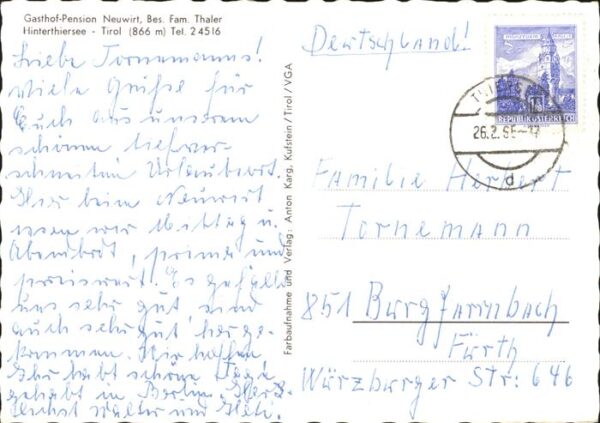 Gasthof-Pension Neuwirt, Bes. Fam. Thaler
Hinterthiersee - Tirol (866 m) Tel. 24516
Liebe Tornemanns!
Viele Grüße für
Euch aus unserem
schönen tiefver-
schneiten Urlaubsort.
Hier beim Neuwirt
essen wir Mittag u.
Abendbrot, prima und
preiswert. Es gefällt
uns sehr gut, sind
auch sehr gut herge-
kommen. Wir hoffen
Ihr habt schöne Tage
gehabt in Berlin. Herz-
lichst Walter und
Farbaufnahme und Verlag: Anton Karg, Kufstein/Tirol/VGA
Deutschland!
REPUBLIK ÖSTERREICH
26.2.65
d
Familie Herbert
Tornemann
851 Burgfarrnbach
Fürth
Würzburger Str: 646